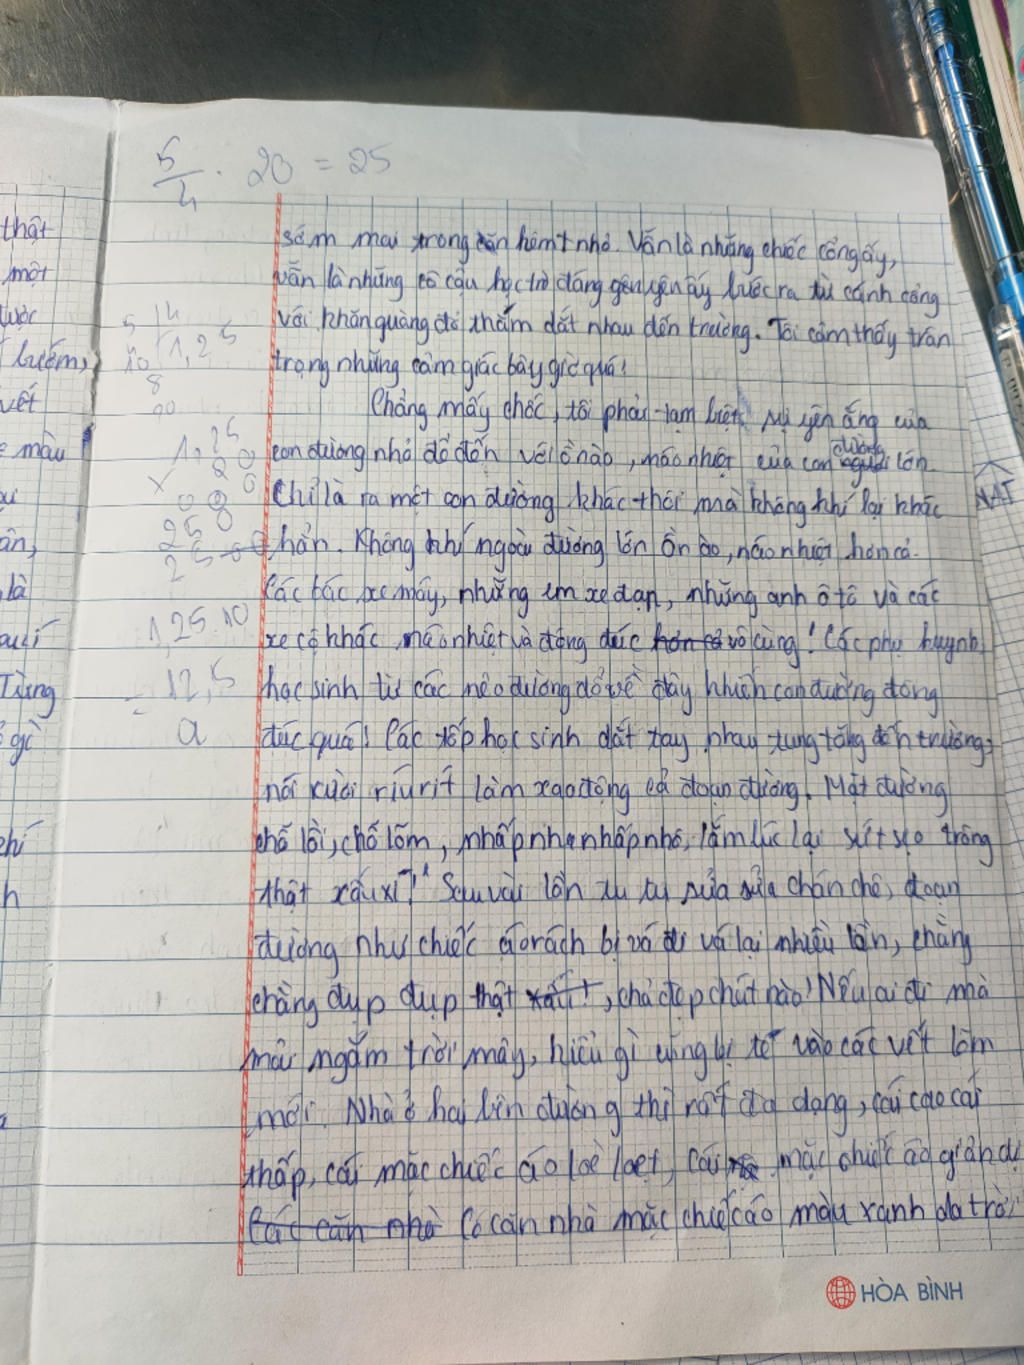 5/4 . 20 = 25
sớm mai trong hẻm nhỏ. Vẫn là những chiếc cổng ấy,
vẫn là những cô cậu học trò đáng yêu ấy bước ra từ cánh cổng
với khăn quàng đỏ thắm dắt nhau đến trường. Tôi cảm thấy trân
trọng những cảm giác bây giờ quá!
Chẳng mấy chốc, tôi phải tạm biệt sự yên ắng của
con đường nhỏ để đến với ồn nào, náo nhiệt của con đường lớn.
Chỉ là ra một con đường khác thôi mà không khí lại khác
hẳn. Không khí ngoài đường lớn ồn ào, náo nhiệt hơn cả.
Các bác xe máy, những em xe đạp, những anh ô tô và các
xe cộ khác náo nhiệt và đông đúc hơn cả vô cùng! Các phụ huynh,
học sinh từ các nẻo đường đổ về đây khiến con đường đông
đúc quá! Các tốp học sinh dắt tay nhau tung tăng đến trường,
nói cười ríu rít làm xao động cả đoạn đường. Mặt đường
chỗ lồi, chỗ lõm, nhấp nhô, lắm lúc lại sứt sẹo trông
thật xấu xí! Sau vài lần tu sửa sửa chán chê, đoạn
đường như chiếc áo rách bị vá đi vá lại nhiều lần, chằng
chằng đụp đụp thật xấu!, chả đẹp chút nào! Nếu ai đi mà
mải ngắm trời mây, kiểu gì cũng bị té vào các vết lõm
mới. Nhà ở hai bên đường thì rất đa dạng, cái cao cái
thấp, cái mặc chiếc áo loè loẹt, cái mặc chiếc áo giản dị
Các căn nhà Có căn nhà mặc chiếc áo màu xanh da trời
5 4
10 1,25
8
1,25
x 20
000
250
25 00
1,25.10
= 12,5
a
thật
một
được
bướm,
vết
màu
ân,
là
Từng
gì
chí
h
NAI
HÒA BÌNH